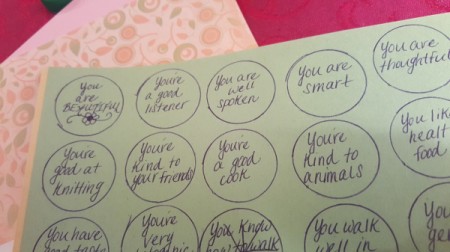 You
are
BEAUTIFUL
You're
a good
listener
You are
well
spoken
You are
smart
You are
thoughtful
You're
good at
knitting
You're
kind to
your friends
You're
a good
cook
You're
kind to
animals
You like
health
food
You have
good taste
You're
very
You know
how to walk
You walk
well in
You're